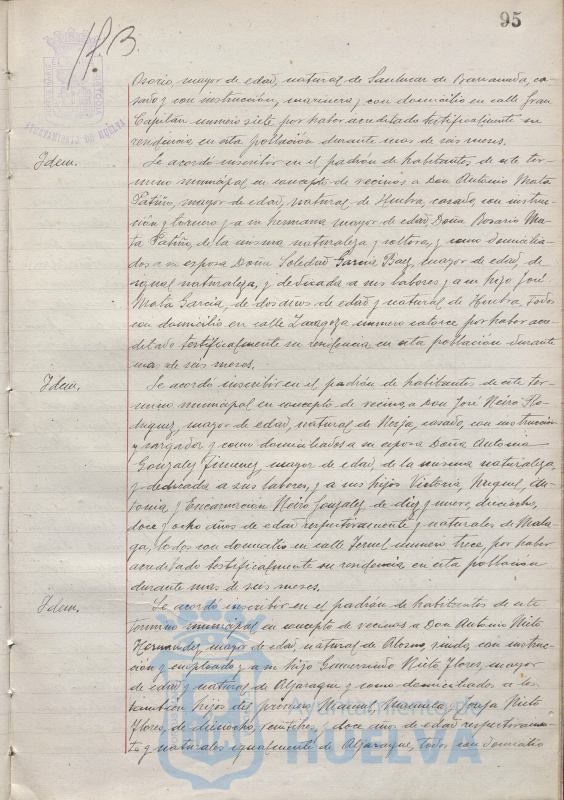 95
AYUNTAMIENTO DE HUELVA
Osorio, mayor de edad, natural de Sanlucar de Barrameda, ca-
sado y con instrucción, marinero y con domicilio en calle Gran
Capitán numero siete por haber acreditado testificalmente su
residencia en esta población durante mas de seis meses.
Idem.
Se acordó inscribir en el padrón de habitantes de este ter-
mino municipal en concepto de vecinos a Don Antonio Mata
Patiño, mayor de edad, natural de Huelva, casado, con instruc-
ción y tornero y a su hermana mayor de edad Doña Rosario Ma-
ta Patiño, de la misma naturaleza y soltera, y como domicilia-
dos a su esposa Doña Soledad García Baez, mayor de edad, de
igual naturaleza, y dedicada a sus labores y a su hijo José
Mata García, de dos años de edad y natural de Huelva, todos
con domicilio en calle Zaragoza numero catorce por haber acre-
ditado testificalmente su residencia en esta población durante
mas de seis meses.
Idem.
Se acordó inscribir en el padrón de habitantes de este ter-
mino municipal en concepto de vecino a Don José Neiro
mayor de edad, natural de Nerja, casado, con instrucción
y cargador y como domiciliados a su esposa Doña Antonia
Gonzalez Jimenez, mayor de edad, de la misma naturaleza
y dedicada a sus labores, y a sus hijos Victoria, Miguel, An-
tonia, y Encarnación Neiro Gonzalez de diez y nueve, dieciocho,
doce y ocho años de edad respectivamente y naturales de Mala-
ga, todos con domicilio en calle Teruel numero trece, por haber
acreditado testificalmente su residencia en esta población
durante mas de seis meses.
Idem.
Se acordó inscribir en el padrón de habitantes de este
termino municipal en concepto de vecinos a Don Antonio Nieto
Hernandez, mayor de edad, natural de Alosno, viudo, con instruc-
ción y empleado y a su hijo Gumersindo Nieto Flores, mayor
de edad y natural de Aljaraque y como domiciliados a los
tambien hijos del primero Manuel, Manuela y Nieto
Flores, de dieciocho, y doce años de edad respectivamen-
te y naturales igualmente de Aljaraque, todos con domicilio
Ayuntamiento de
HUELVA